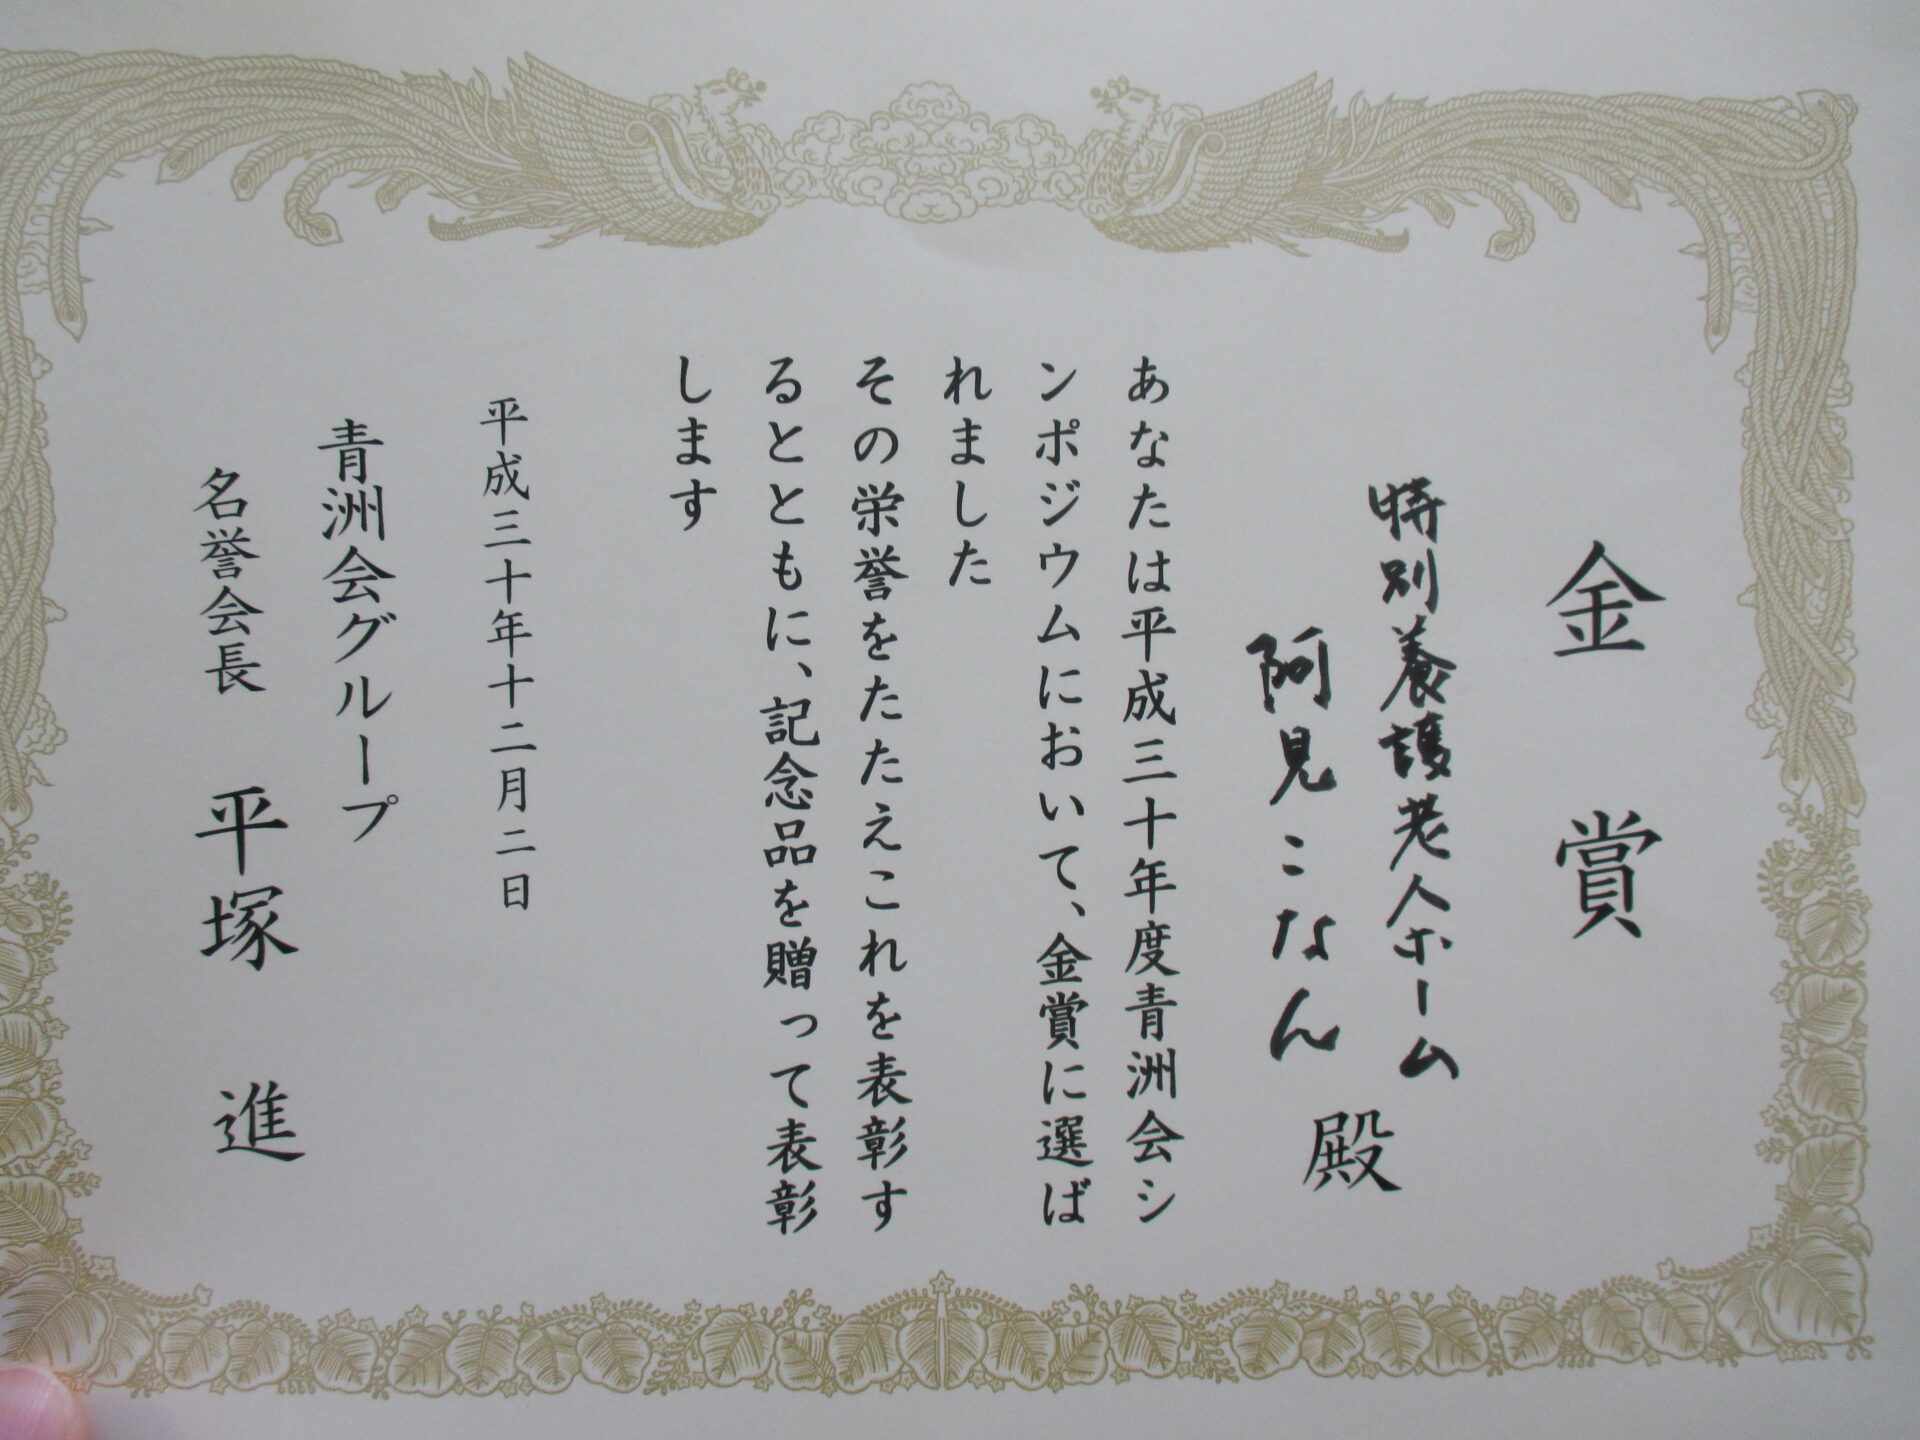 金賞
特別養護老人ホーム
阿見こなん
殿
あなたは平成三十年度青洲会シ
ンポジウムにおいて、金賞に選ば
れました
その栄誉をたたえこれを表彰す
るとともに、記念品を贈って表彰
します
平成三十年十二月二日
青洲会グループ
名誉会長 平塚 進